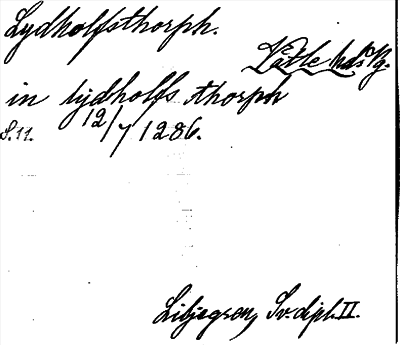 Lydholfsthorph.
Vätle hds Vg.
in lydholfs thorph
S. 11. 12/7 1286.
Liljegren, Sv. dipl. II.